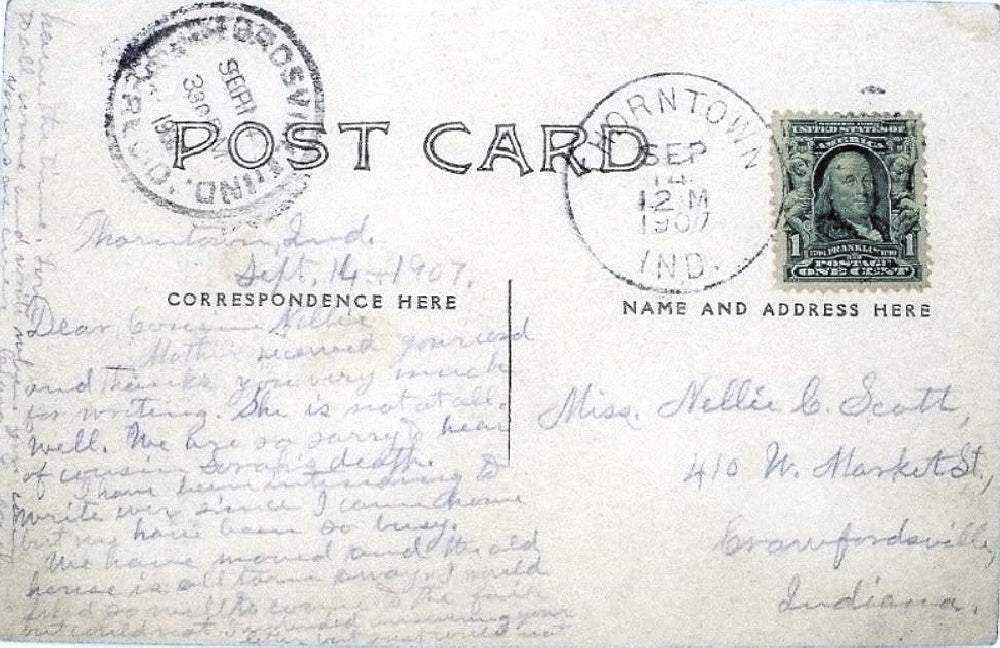 POST CARD
THORNTOWN
SEP
14
12 M
1907
IND.
UNITED STATES OF
AMERICA
1 FRANKLIN 1
POSTAGE
ONE CENT
IND.
Thorntown, Ind.
Sept. 14 - 1907.
CORRESPONDENCE HERE
NAME AND ADDRESS HERE
Dear Cousin Nellie
Mother received your card
and thanks you very much
for writing. She is not at all
well. We are so sorry to hear
of cousin death.
I have been intending to
write ever since I came home
but my have been so busy.
We have moved and the old
house is all torne away. I would
so to come to the fair
but could not I intended answering your
letter but just could not
have the time.
Miss. Nellie C. Scott,
410 W. Market St.,
Crawfordsville,
Indiana.